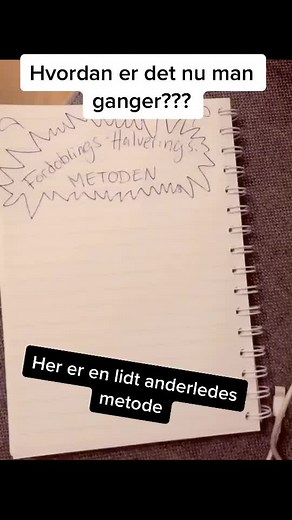 Hvordan er det nu man
ganger???
Fordoblings-Halverings
METODEN
Her er en lidt anderledes
metode